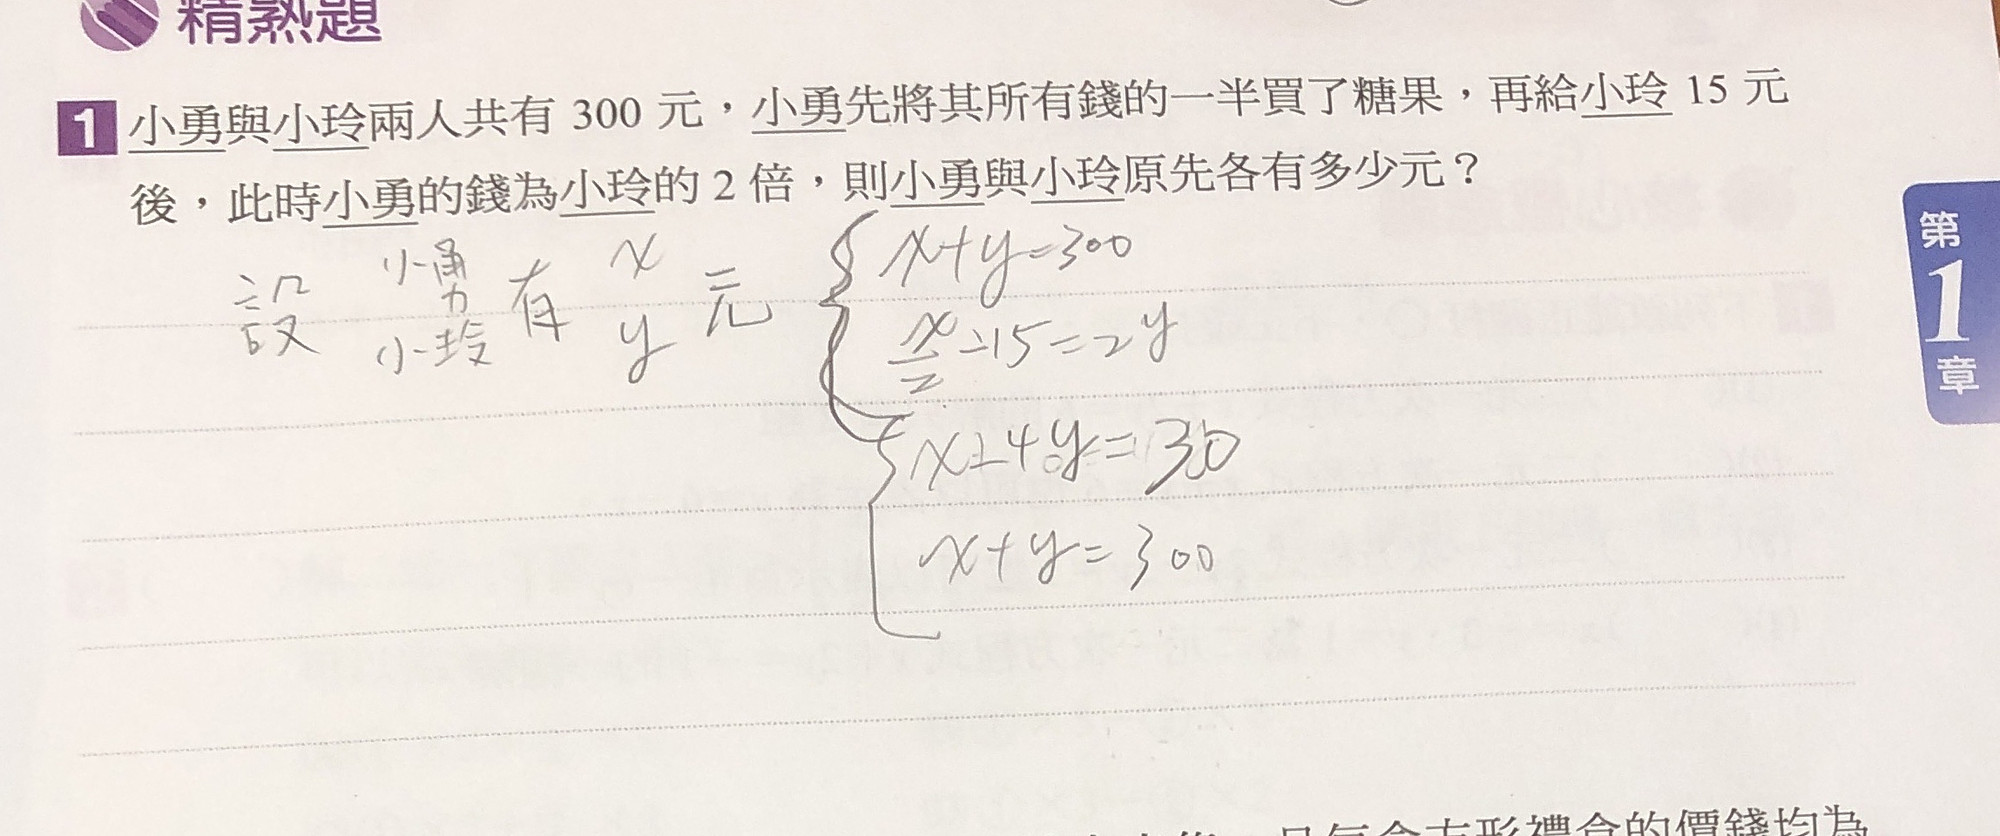 精熟題
1 小勇與小玲兩人共有 300 元，小勇先將其所有錢的一半買了糖果，再給小玲 15 元
後，此時小勇的錢為小玲的 2 倍，則小勇與小玲原先各有多少元？
設 小勇 有 x 元
小玲 y
x+y=300
x/2-15=2y
x-4y=30
x+y=300
第1章
盒方形禮盒的價錢均為